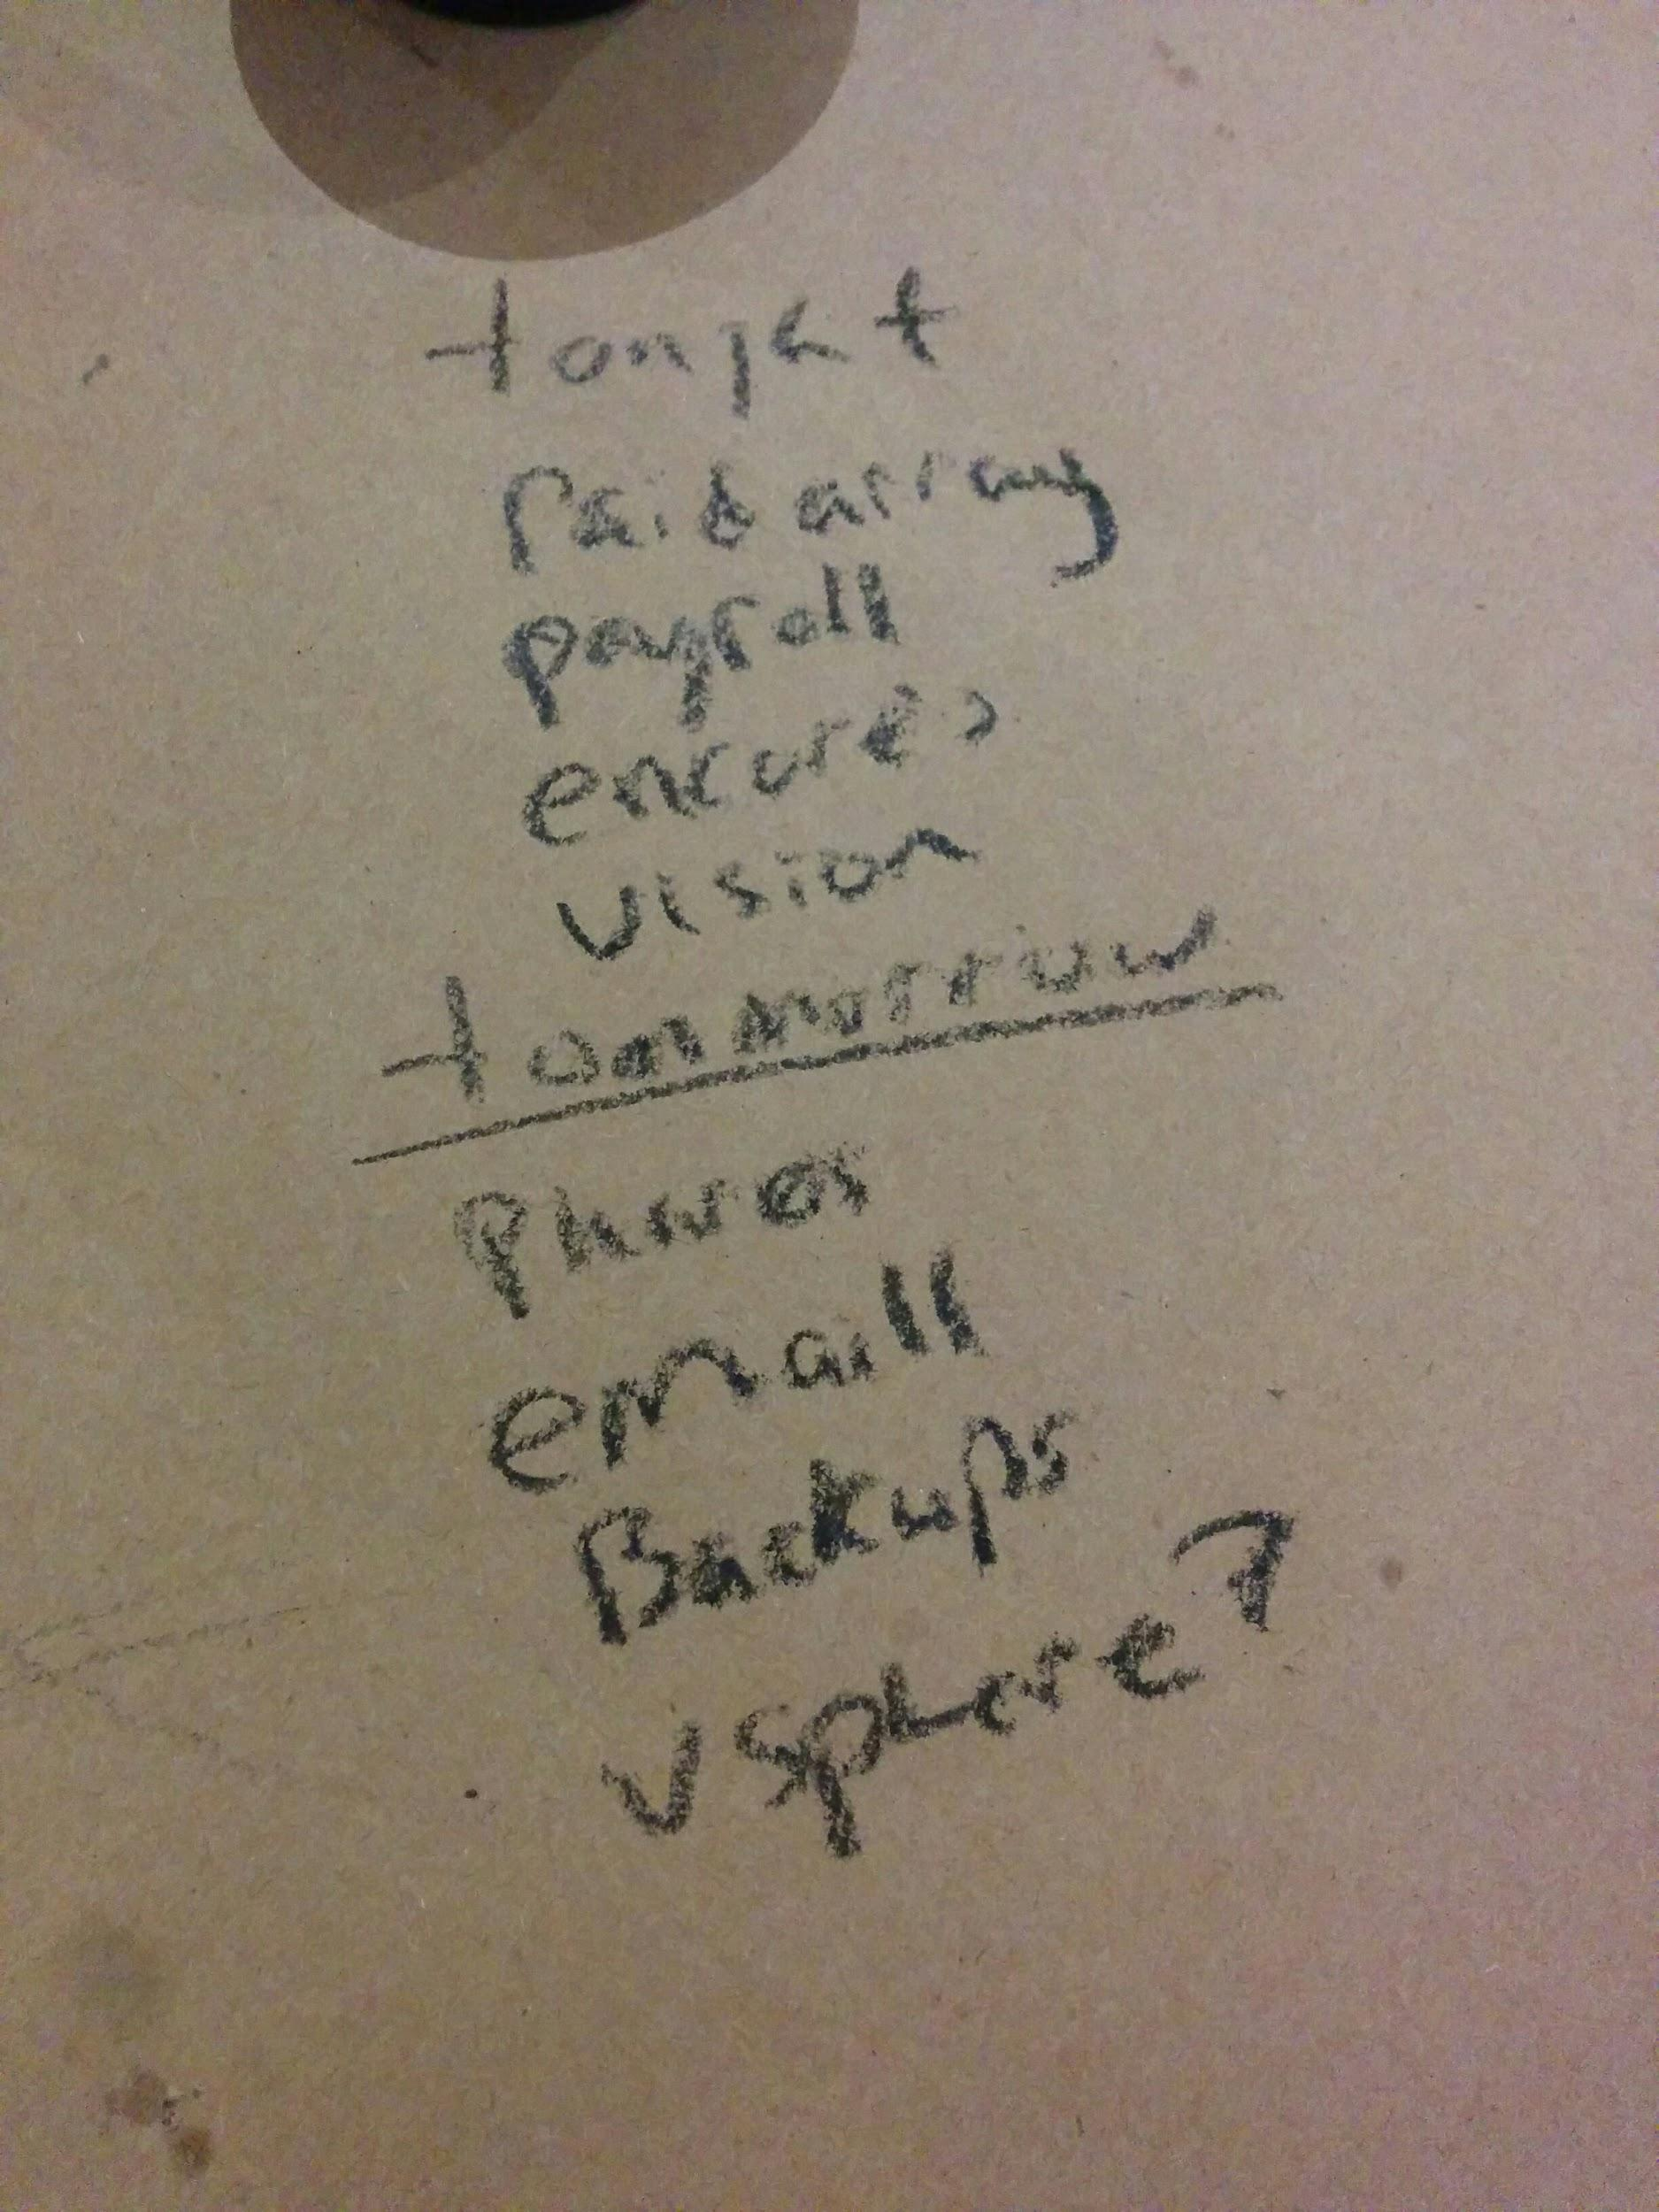 tonight
raid array
payroll
encore?
vision
tommorrow
phones
emaill
Backups
vsphere?